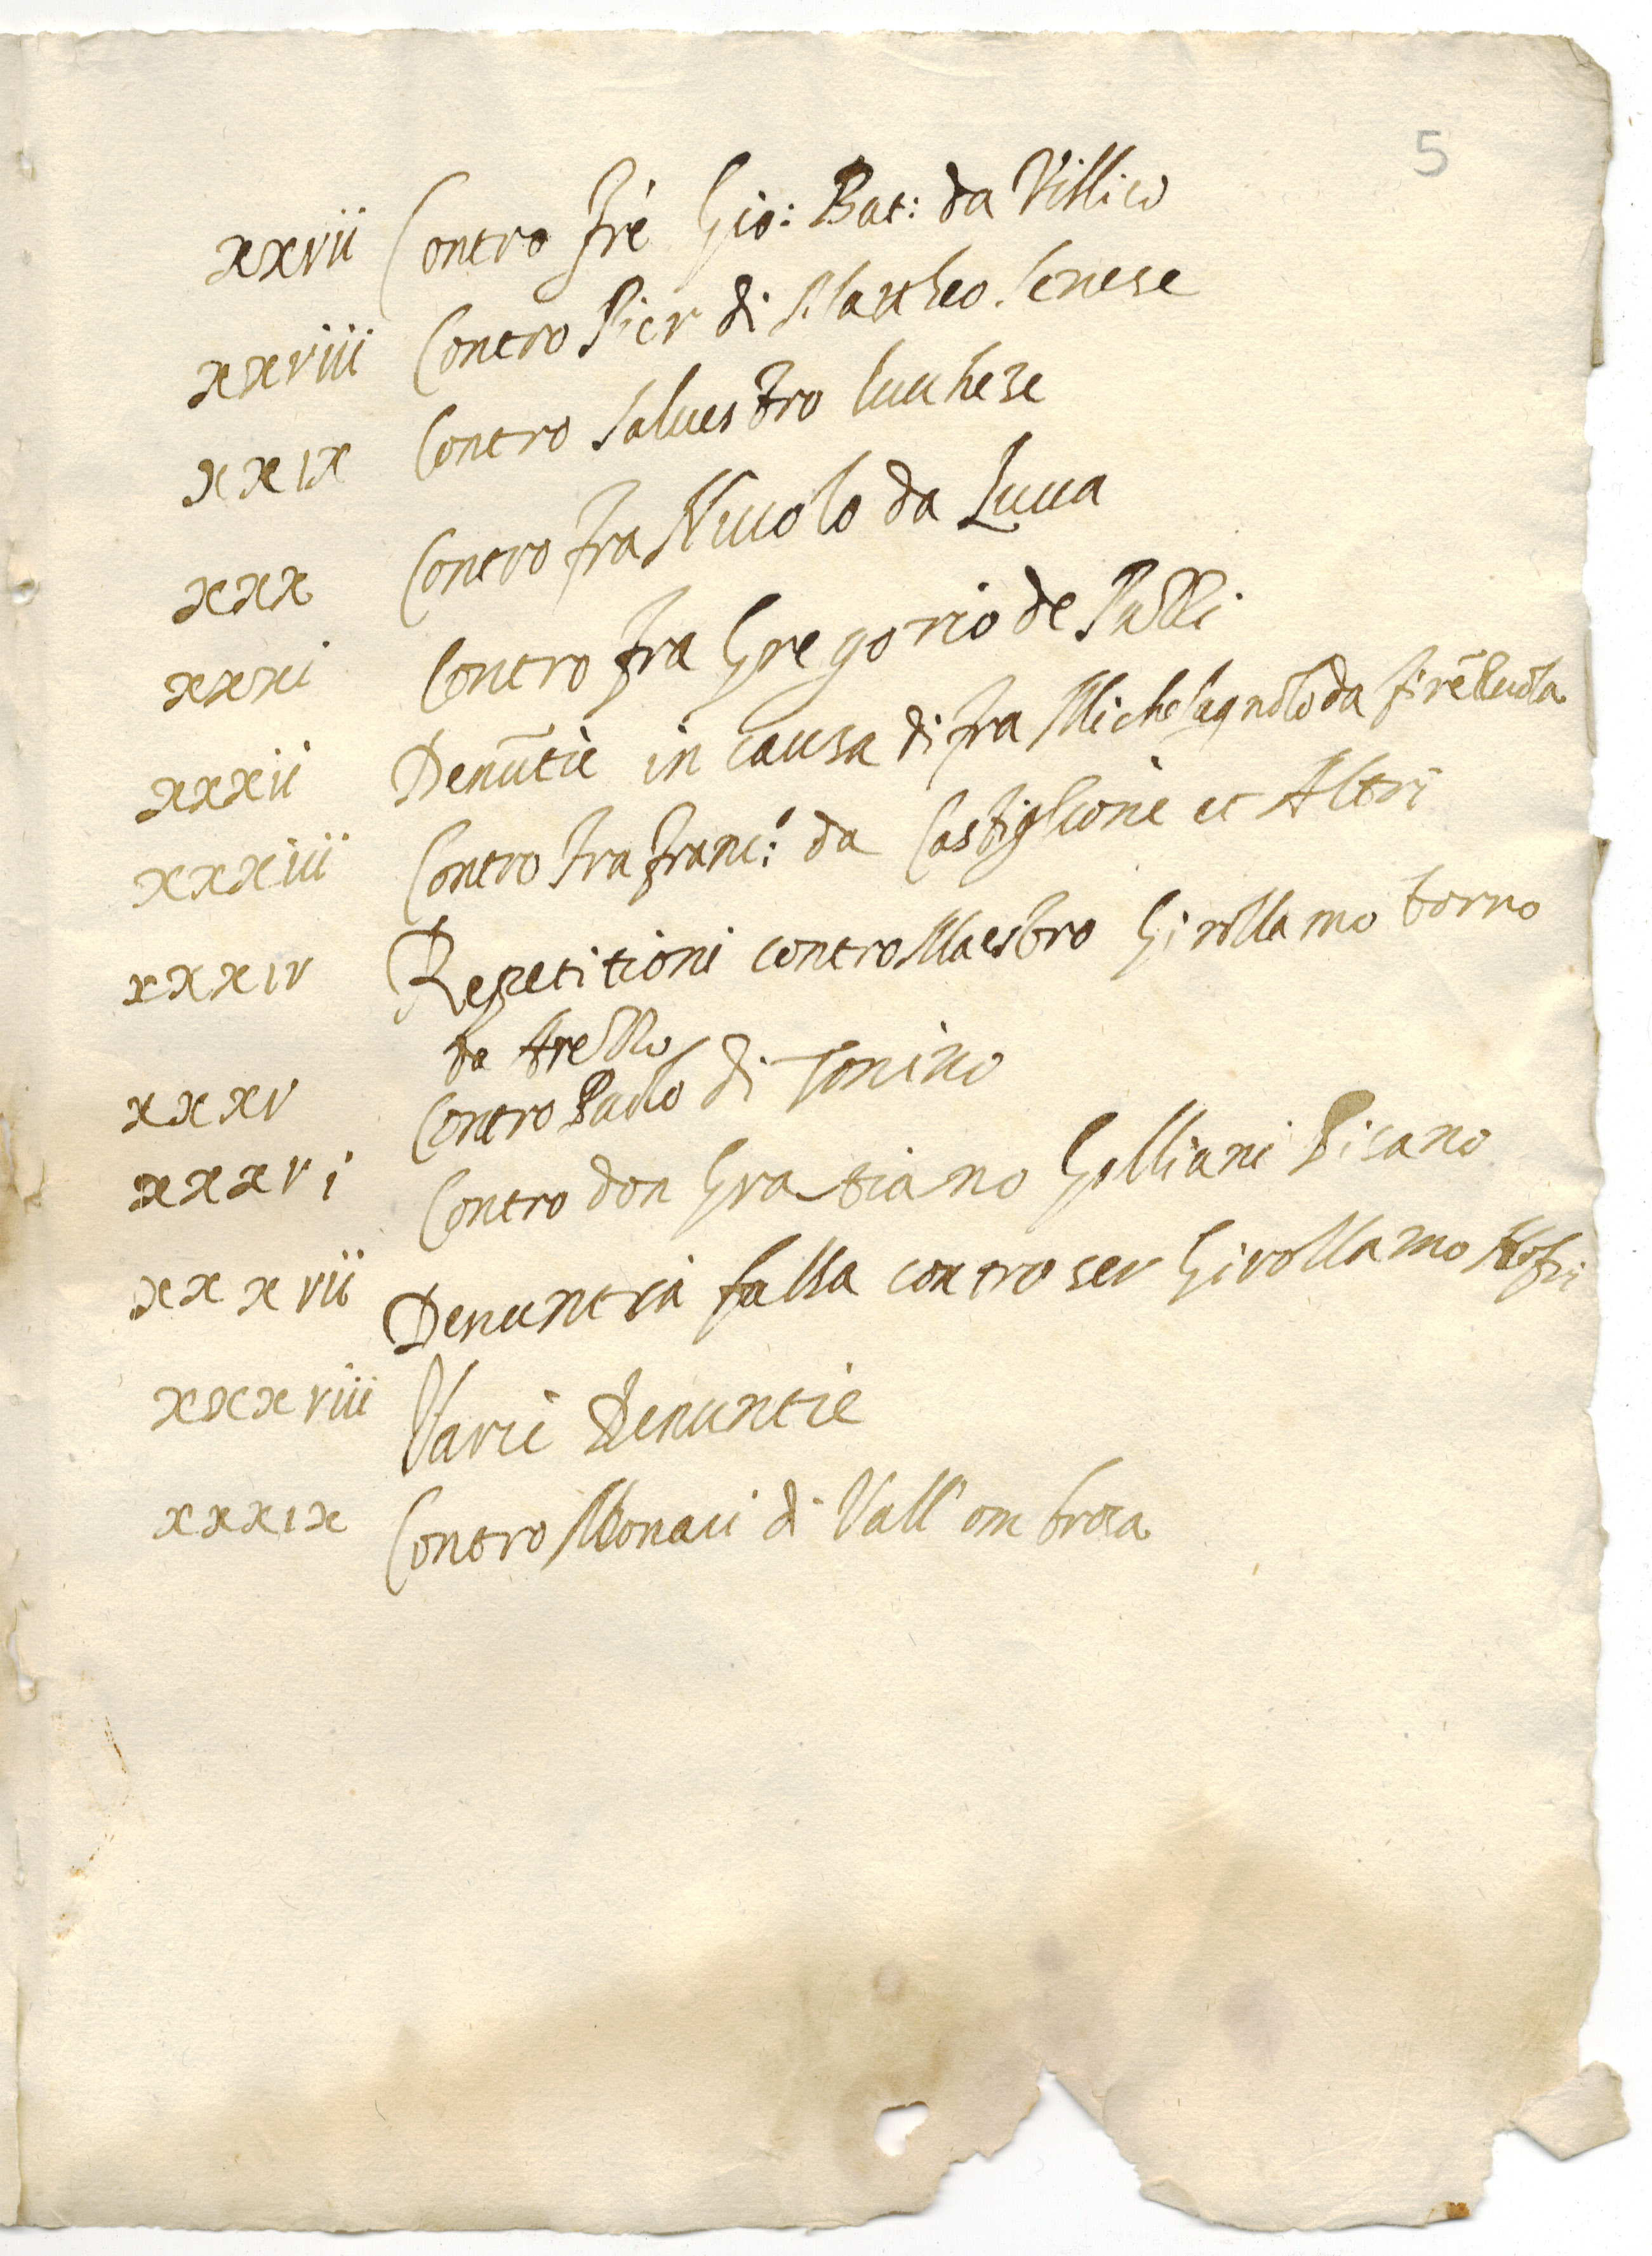 5
xxvii Contro Frè Gio: Bat: da Villico
xxviii Contro Pier di Mattheo Senese
xxix Contro Salvestro lucchese
xxx Contro fra Niccolo da Lucca
xxxi Contro fra Gregorio de
xxxii Denūtie in causa di fra Michelagnolo da
xxxiii Contro fra Franc:º da Castiglione et Altri
xxxiv Repetitioni contro Maestro Girollamo torno
da
xxxv Contro Paulo di Tonino
xxxvi Contro don Gratiano Gelliani Pisano
xxxvii Denuntia falsa contro ser Girollamo
xxxviii Varie Denuntie
xxxix Contro Monaci di Vall'ombrosa